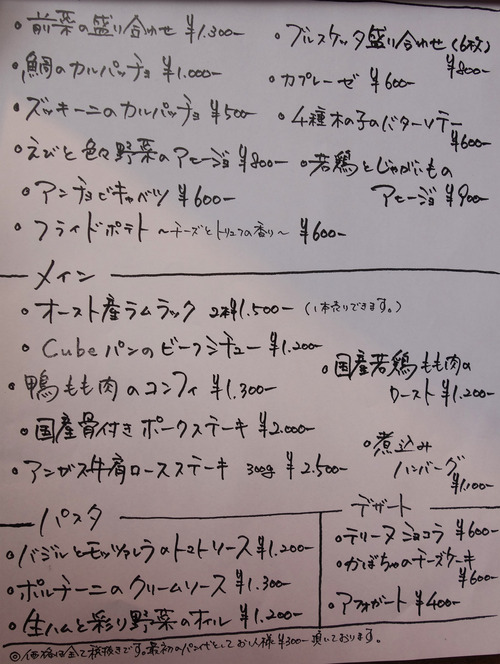 ・前菜の盛り合わせ ¥1.300-
・ブルスケッタ盛り合わせ(6枚)
¥800-
・鯛のカルパッチョ ¥1.000-
・カプレーゼ ¥600-
・ズッキーニのカルパッチョ ¥500-
・4種木の子のバターソテー
¥600-
・えびと色々野菜のアヒージョ ¥800-
・若鶏とじゃがいもの
アヒージョ ¥900-
・アンチョビキャベツ ¥600-
・フライドポテト ～チーズとトリュフの香り～ ¥600-
メイン
・オースト産ラムラック 2本¥1.500- (1本売りできます。)
・Cubeパンのビーフシチュー ¥1.200-
・国産若鶏もも肉の
ロースト ¥1.200-
・鴨もも肉のコンフィ ¥1.300-
・国産骨付きポークステーキ ¥2.000-
・煮込み
ハンバーグ
¥1.100-
・アンガス牛肩ロースステーキ 300g ¥2.500-
パスタ
・バジルとモッツァレラのトマトソース ¥1.200-
・ポルチーニのクリームソース ¥1.300-
・生ハムと彩り野菜のオイル ¥1.200-
デザート
・テリーヌショコラ ¥600-
・かぼちゃのチーズケーキ
¥600-
・アフォガート ¥400-
◎価格は全て税抜きです。最初のパン代としてお1人様¥300-頂いております。